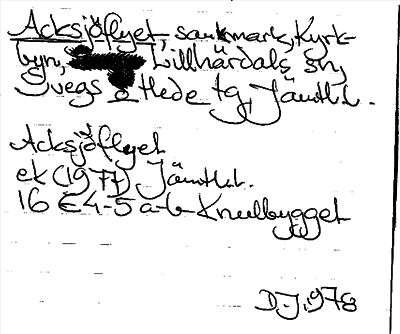 Acksjöflyet, sankmark, Kyrk-
byn, Lillhärdals sn,
Svegs o Hede tg, Jämtl.l.
Acksjöflyet
ek (1977) Jämtl.l.
16 E 4-5 a-b Knulbygget
D.J. 1978